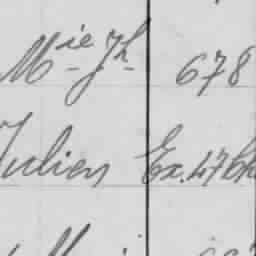 Mie Jh 678
Julien Ex. 47 bh